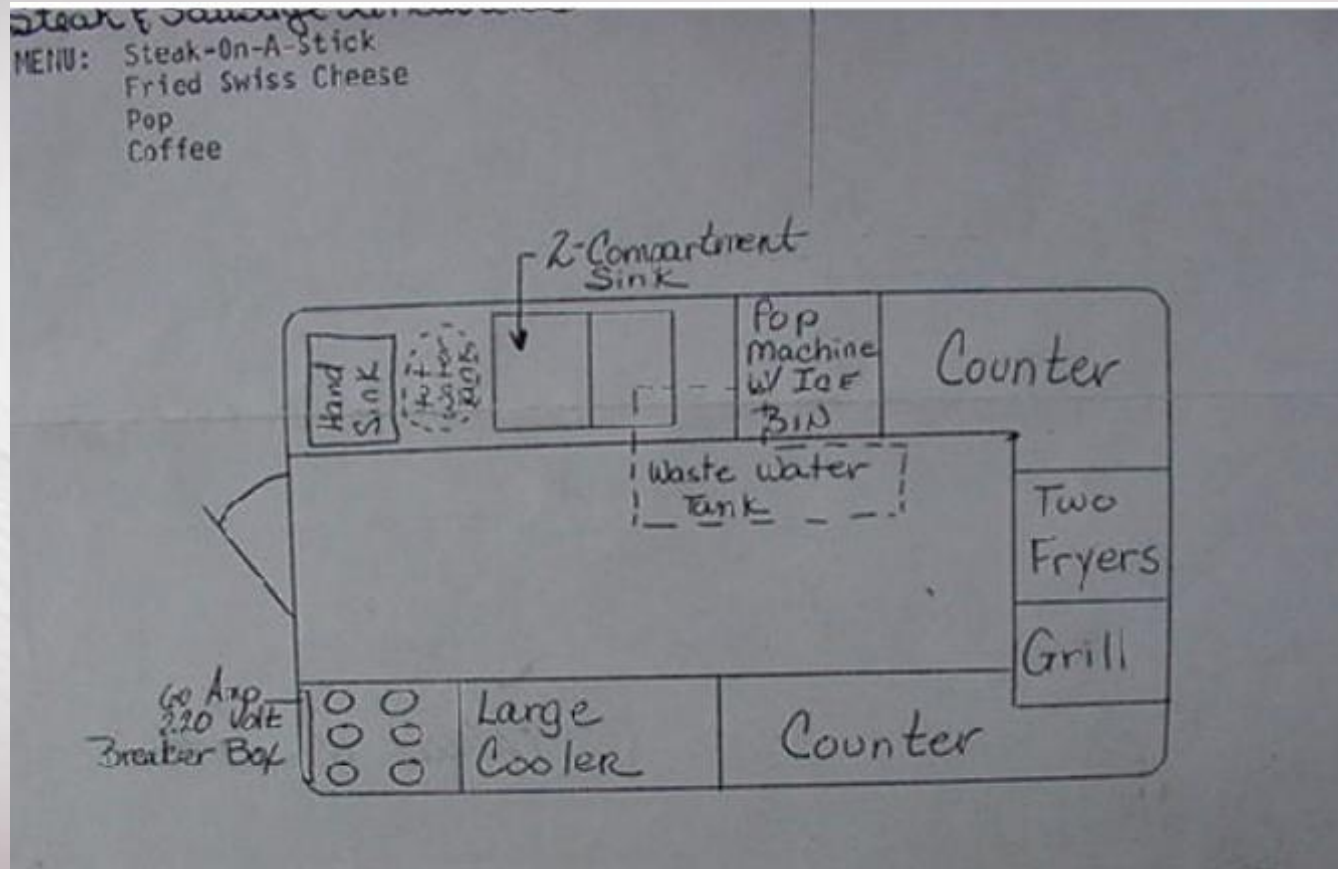 Steak & Sausage
MENU: Steak-On-A-Stick
Fried Swiss Cheese
Pop
Coffee
2-Compartment
Sink
Hand
Sink
Hot
Water
Tank
Pop
Machine
W/ Ice
BIN
Counter
Waste Water
Tank
Two
Fryers
Grill
60 Amp
220 Volt
Breaker Box
Large
Cooler
Counter